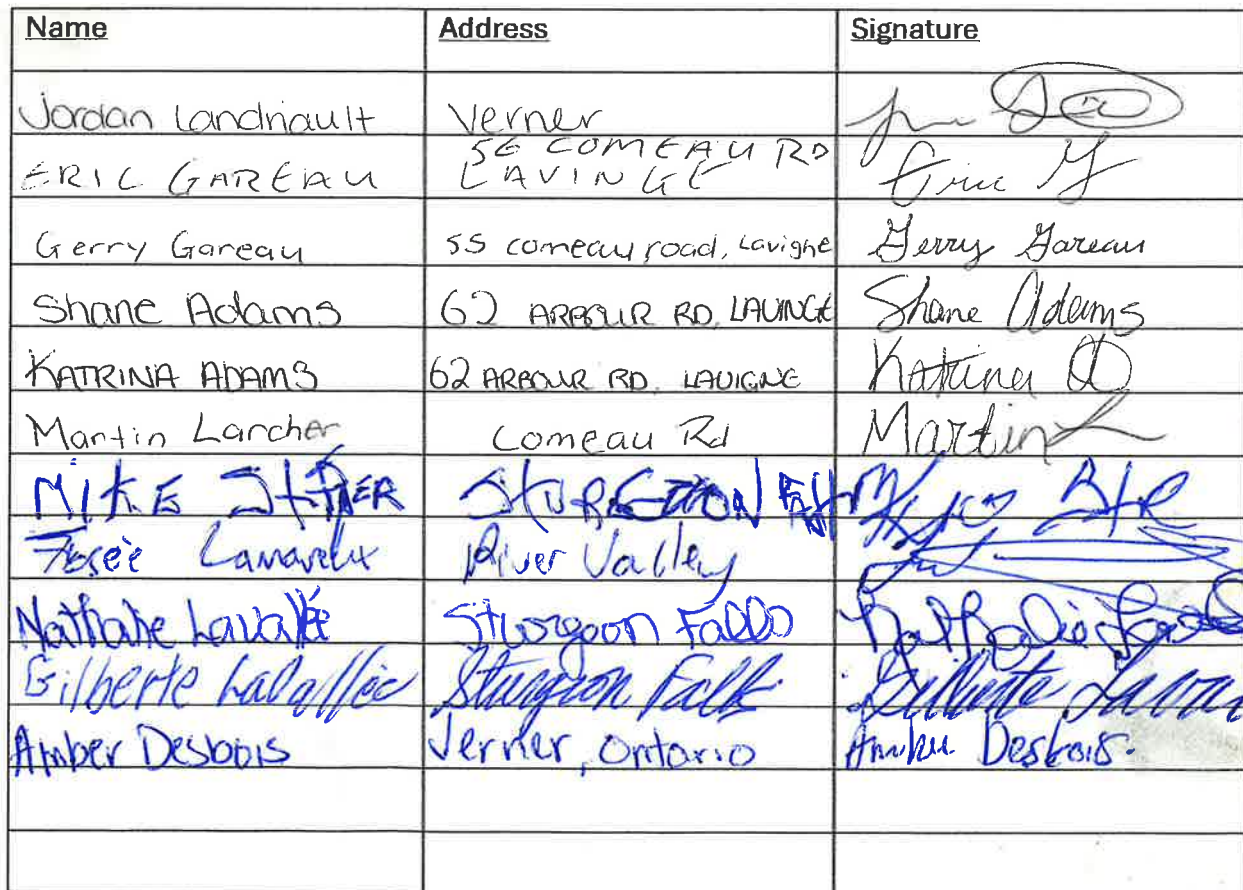 Name Address Signature
Jordan Landriault Verner
56 COMEAU RD
ERIC GAREAU LAVINGE Eric G
Gerry Gareau 55 comeau road, Lavigne Gerry Gareau
Shane Adams 62 ARBOUR RD. LAVINGE Shane Adams
KATRINA ADAMS 62 ARBOUR RD. LAVIGNE Katrina A
Martin Larcher Comeau Rd Martin L
MIKE STURGEON
Josée Lamareux River Valley
Nathalie Lavallée Sturgeon Falls Nathalie
Gilberte Lavallée Sturgeon Falls Gilberte Lavall
Amber Desbois Verner, Ontario Amber Desbois.